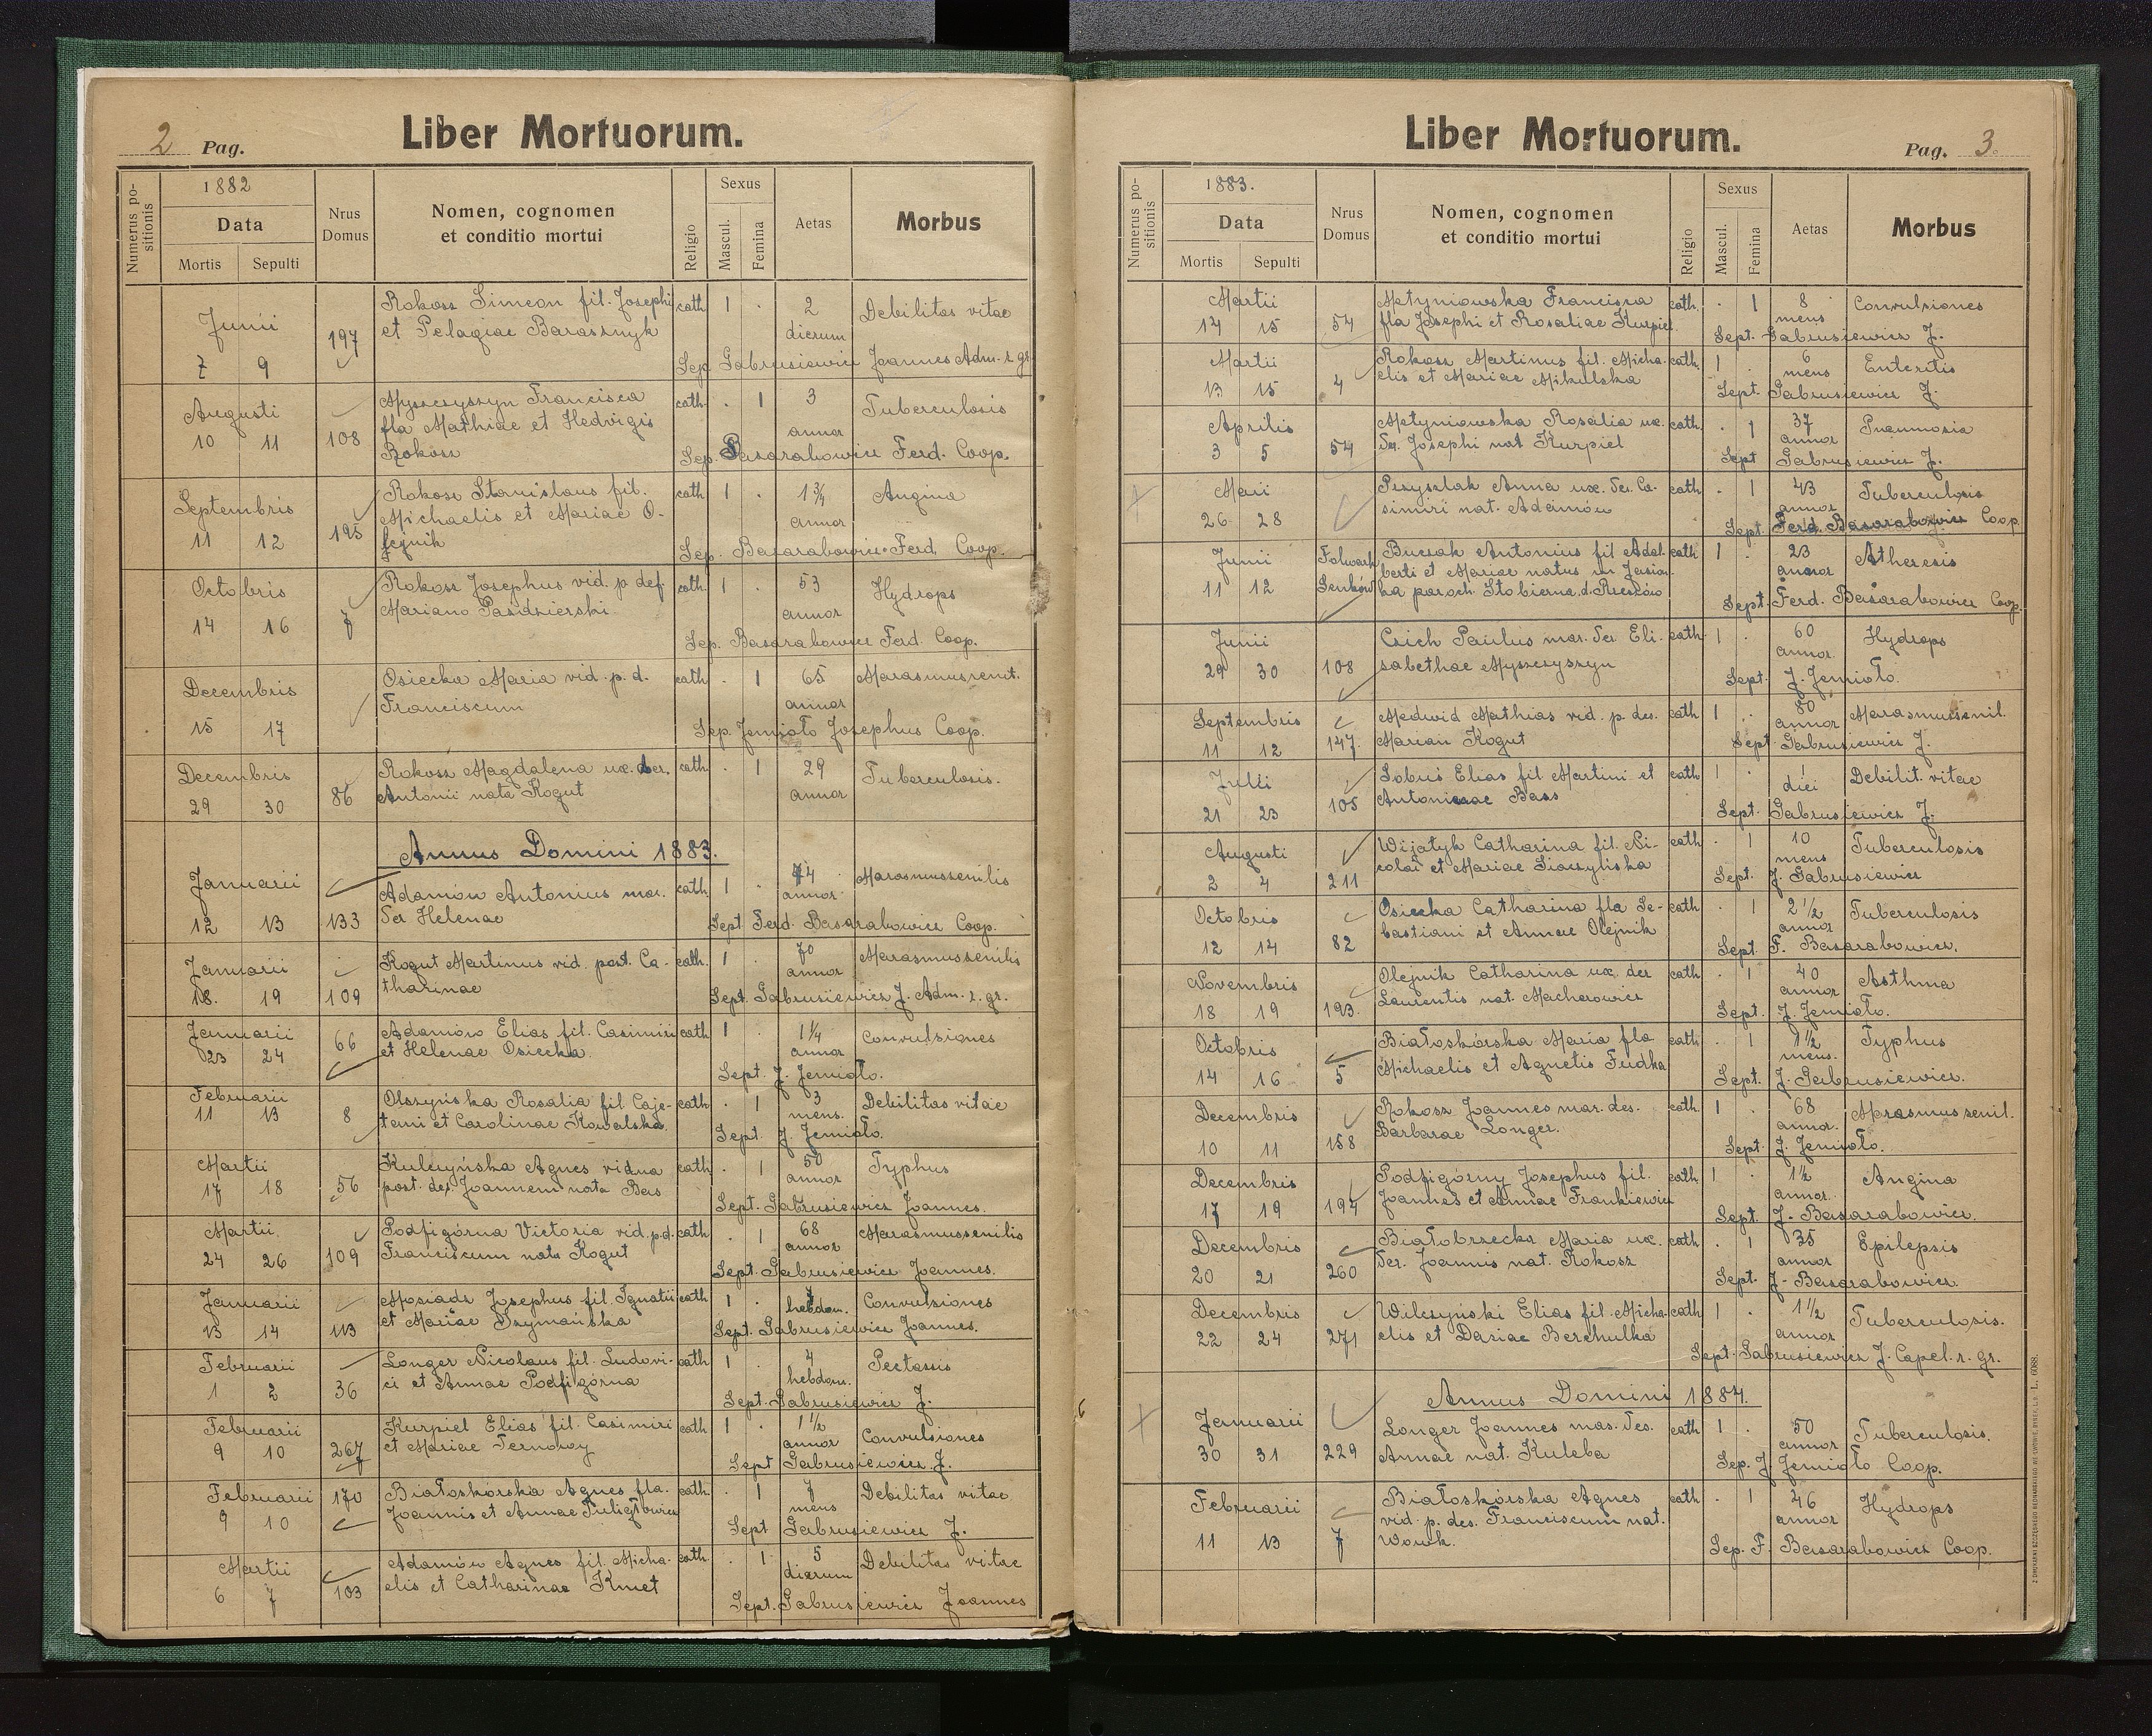 2 Pag. Liber Mortuorum.
Numerus positionis
1882
Data
Mortis Sepulti
Nrus Domus
Nomen, cognomen
et conditio mortui
Religio
Sexus
Mascul. Femina
Aetas
Morbus
Junii 7 9 197 Rokosz Simeon fil. Josephi cath 1 . 2 dierum Debilitas vitae
et Pelagiae Barasznyk
Sep. Gabrusiewicz Joannes Adm. r. gr.
Augusti 10 11 108 Myszczyszyn Francisca cath. . 1 3 annor Tuberculosis
fla Mathiae et Hedvigis
Rokosz
Sep. Basarabowicz Ferd. Coop.
Septembris 11 12 195 Rokosz Stanislaus fil. cath 1 . 1 3/4 annor Angina
Michaelis et Mariae O-
lejnik
Sep. Basarabowicz Ferd. Coop.
Octobris 14 16 7 Rokosz Josephus vid. p. def. cath. 1 . 53 annor Hydrops
Mariano Pasidzierski
Sep. Basarabowicz Ferd. Coop.
Decembris 15 17 Osiecka Maria vid. p. d. cath . 1 65 annor Marasmus senit.
Franciscum
Sep. Jemioło Josephus Coop.
Decembris 29 30 86 Rokosz Magdalena ux. der. cath . 1 29 annor Tuberculosis.
Antonii nata Kogut
Annus Domini 1883.
Januarii 12 13 133 Adamów Antonius mar. cath 1 . 74 annor Marasmus senilis
der Helenae
Sept. Ferd. Basarabowicz Coop.
Januarii 18. 19 109 Kogut Martinus vid. post. Ca- cath. 1 . 70 annor Marasmus senilis
tharinae
Sept. Gabrusiewicz J. Adm. r. gr.
Januarii 23 24 66 Adamów Elias fil. Casimiri cath 1 . 1 1/4 annor Convulsiones
et Helenae Osiecka.
Sept. J. Jemioło.
Februarii 11 13 8 Olszyńska Rosalia fil. Caje- cath . 1 3 mens. Debilitas vitae
tani et Carolinae Kowalska.
Sept. J. Jemioło.
Martii 17 18 56 Kulczyńska Agnes vidua cath . 1 50 annor Typhus
post. def. Joannem nata Bas
Sept. Gabrusiewicz Joannes.
Martii 24 26 109 Podfigórna Victoria vid. p. d. cath . 1 68 annor Marasmus senilis
Franciscum nata Kogut
Sept. Gabrusiewicz Joannes.
Januarii 13 14 113 Mosiadz Josephus fil. Ignatii cath 1 . hebdom. Convulsiones
et Mariae Dzymańska
Sept. Gabrusiewicz Joannes.
Februarii 1 2 36 Longer Nicolaus fil. Ludovi- cath 1 . 4 hebdom.
ci et Annae Podfigórna
Sept. Gabrusiewicz J.
Februarii 9 10 267 Kurpiel Elias fil. Casimiri cath 1 . 1 1/2 annor Convulsiones
et Mariae Ternowy
Sept Gabrusiewicz J.
Februarii 9 10 170 Białoskórska Agnes fla. cath. . 1 7 mens Debilitas vitae
Joannis et Annae
Sept Gabrusiewicz J.
Martii 6 7 103 Adamów Agnes fil. Micha- cath. . 1 5 dierum Debilitas vitae
elis et Catharinae Kmet
Sept. Gabrusiewicz Joannes
Liber Mortuorum. Pag. 3.
Numerus positionis
1883.
Data
Mortis Sepulti
Nrus Domus
Nomen, cognomen
et conditio mortui
Religio
Sexus
Mascul. Femina
Aetas
Morbus
Martii 14 15 54 Martyniowska Francisca cath. . 1 8 mens Convulsiones
fla Josephi et Rosaliae Kurpiel.
Sept. Gabrusiewicz J.
Martii 13 15 4 Rokosz Martinus fil. Micha- cath. 1 . 6 mens Enteritis
elis et Mariae Mikulska
Sept. Gabrusiewicz J.
Aprilis 3 5 54 Martyniowska Rosalia ux. cath. . 1 37 annor Pneumonia
der. Josephi nat Kurpiel
Sept Gabrusiewicz J.
Maii 26 28 Przyszlak Anna ux. der. Ca- cath . 1 43 annor Tuberculosis
simiri nat. Adamów
Sept. Ferd. Basarabowicz Coop.
Junii 11 12 Folwark Senków Buczak Antonius fil Adal- cath 1 . 23 annor Atheresis
berti et Mariae natus in Jasion-
ka paroch. Stobierna, d. Rzeszów
Sept. Ferd. Basarabowicz Coop.
Junii 29 30 108 Czich Paulus mar. der. Eli- cath. 1 . 60 annor. Hydrops
sabethae Myszczyszyn
Sept. J. Jemioło.
Septembris 11 12 147. Medwid Mathias vid. p. des. cath 1 . 80 annor Marasmus senil.
Marian Kogut
Sept. Gabrusiewicz J.
Julii 21 23 105 Sobuś Elias fil Martini et cath 1 . 1 diei Debilit. vitae
Antoninae Bass
Sept. Gabrusiewicz J.
Augusti 2 4 211 Wijatyk Catharina fil. Ni- cath . 1 10 mens Tuberculosis
colai et Mariae Siaczyńska
Sept. J. Gabrusiewicz
Octobris 12 14 82 Osiecka Catharina fla Se- cath . 1 2 1/2 annor Tuberculosis
bastiani et Annae Olejnik
Sept F. Basarabowicz.
Novembris 18 19 193. Olejnik Catharina ux. der cath . 1 40 annor Asthma
Laurentis nat. Macherowicz
Sept. J. Jemioło.
Octobris 14 16 5 Białoskórska Maria fla cath . 1 1 1/2 mens. Typhus
Michaelis et Agnetis Fudka
Sept. J. Gabrusiewicz.
Decembris 10 11 158 Rokosz Joannes mar. des. cath. 1 . 68 annor. Marasmus senil.
Barbarae Longer.
Sept. J. Jemioło.
Decembris 17 19 194 Podfigórny Josephus fil. cath. 1 . 1 1/2 annor. Angina
Joannes et Annae Frankiewicz
Sept. J. Basarabowicz.
Decembris 20 21 260 Białobrzecka Maria ux. cath . 1 35 annor Epilepsis
der. Joannis nat. Rokosz
Sept. J. Basarabowicz.
Decembris 22 24 271 Wilczyński Elias fil. Micha- cath 1 . 1 1/2 annor Tuberculosis.
elis et Dariae Berehulka
Sept. Gabrusiewicz J. Capel. r. gr.
Annus Domini 1884.
Januarii 30 31 229 Longer Joannes mar. des. cath 1 . 50 annor Tuberculosis.
Annae nat. Kuleba
Sep. J. Jemioło Coop.
Februarii 11 13 7 Białoskórska Agnes cath . 1 46 annor Hydrops
vid. p. des. Franciscum nat.
Wowk.
Sep. F. Basarabowicz Coop.